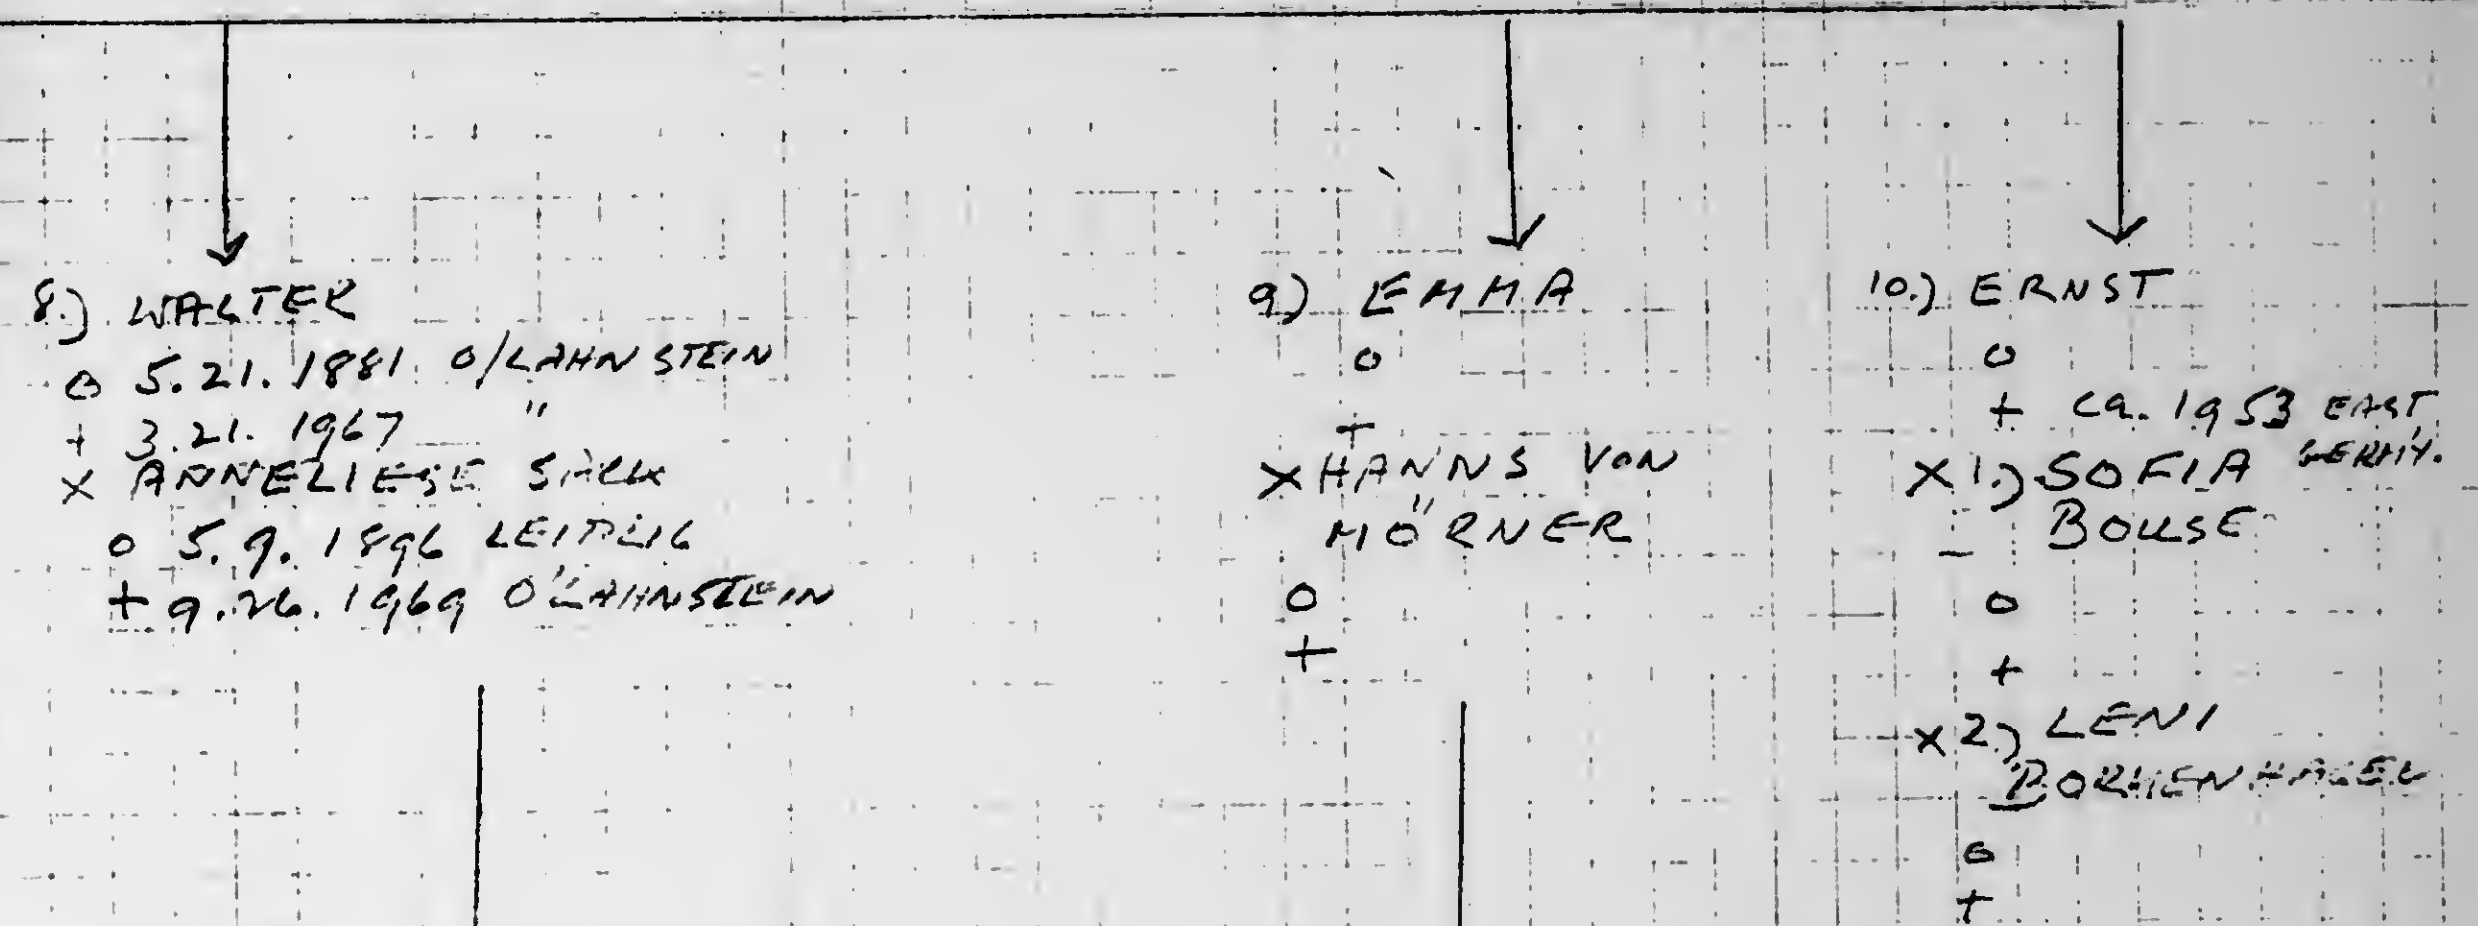 8.) WALTER
o 5.21.1881 O/LAHNSTEIN
+ 3.21.1967 "
X ANNELIESE
o 5.9.1896 LEIPZIG
+ 9.26.1969 O'LAHNSTEIN
9) EMMA
o
+
X HANNS VON
MÖRNER
o
+
10.) ERNST
o
+ ca. 1953 EAST
GERMY.
X 1.) SOFIA
BOUSE
o
+
X 2.) LENI
o
+